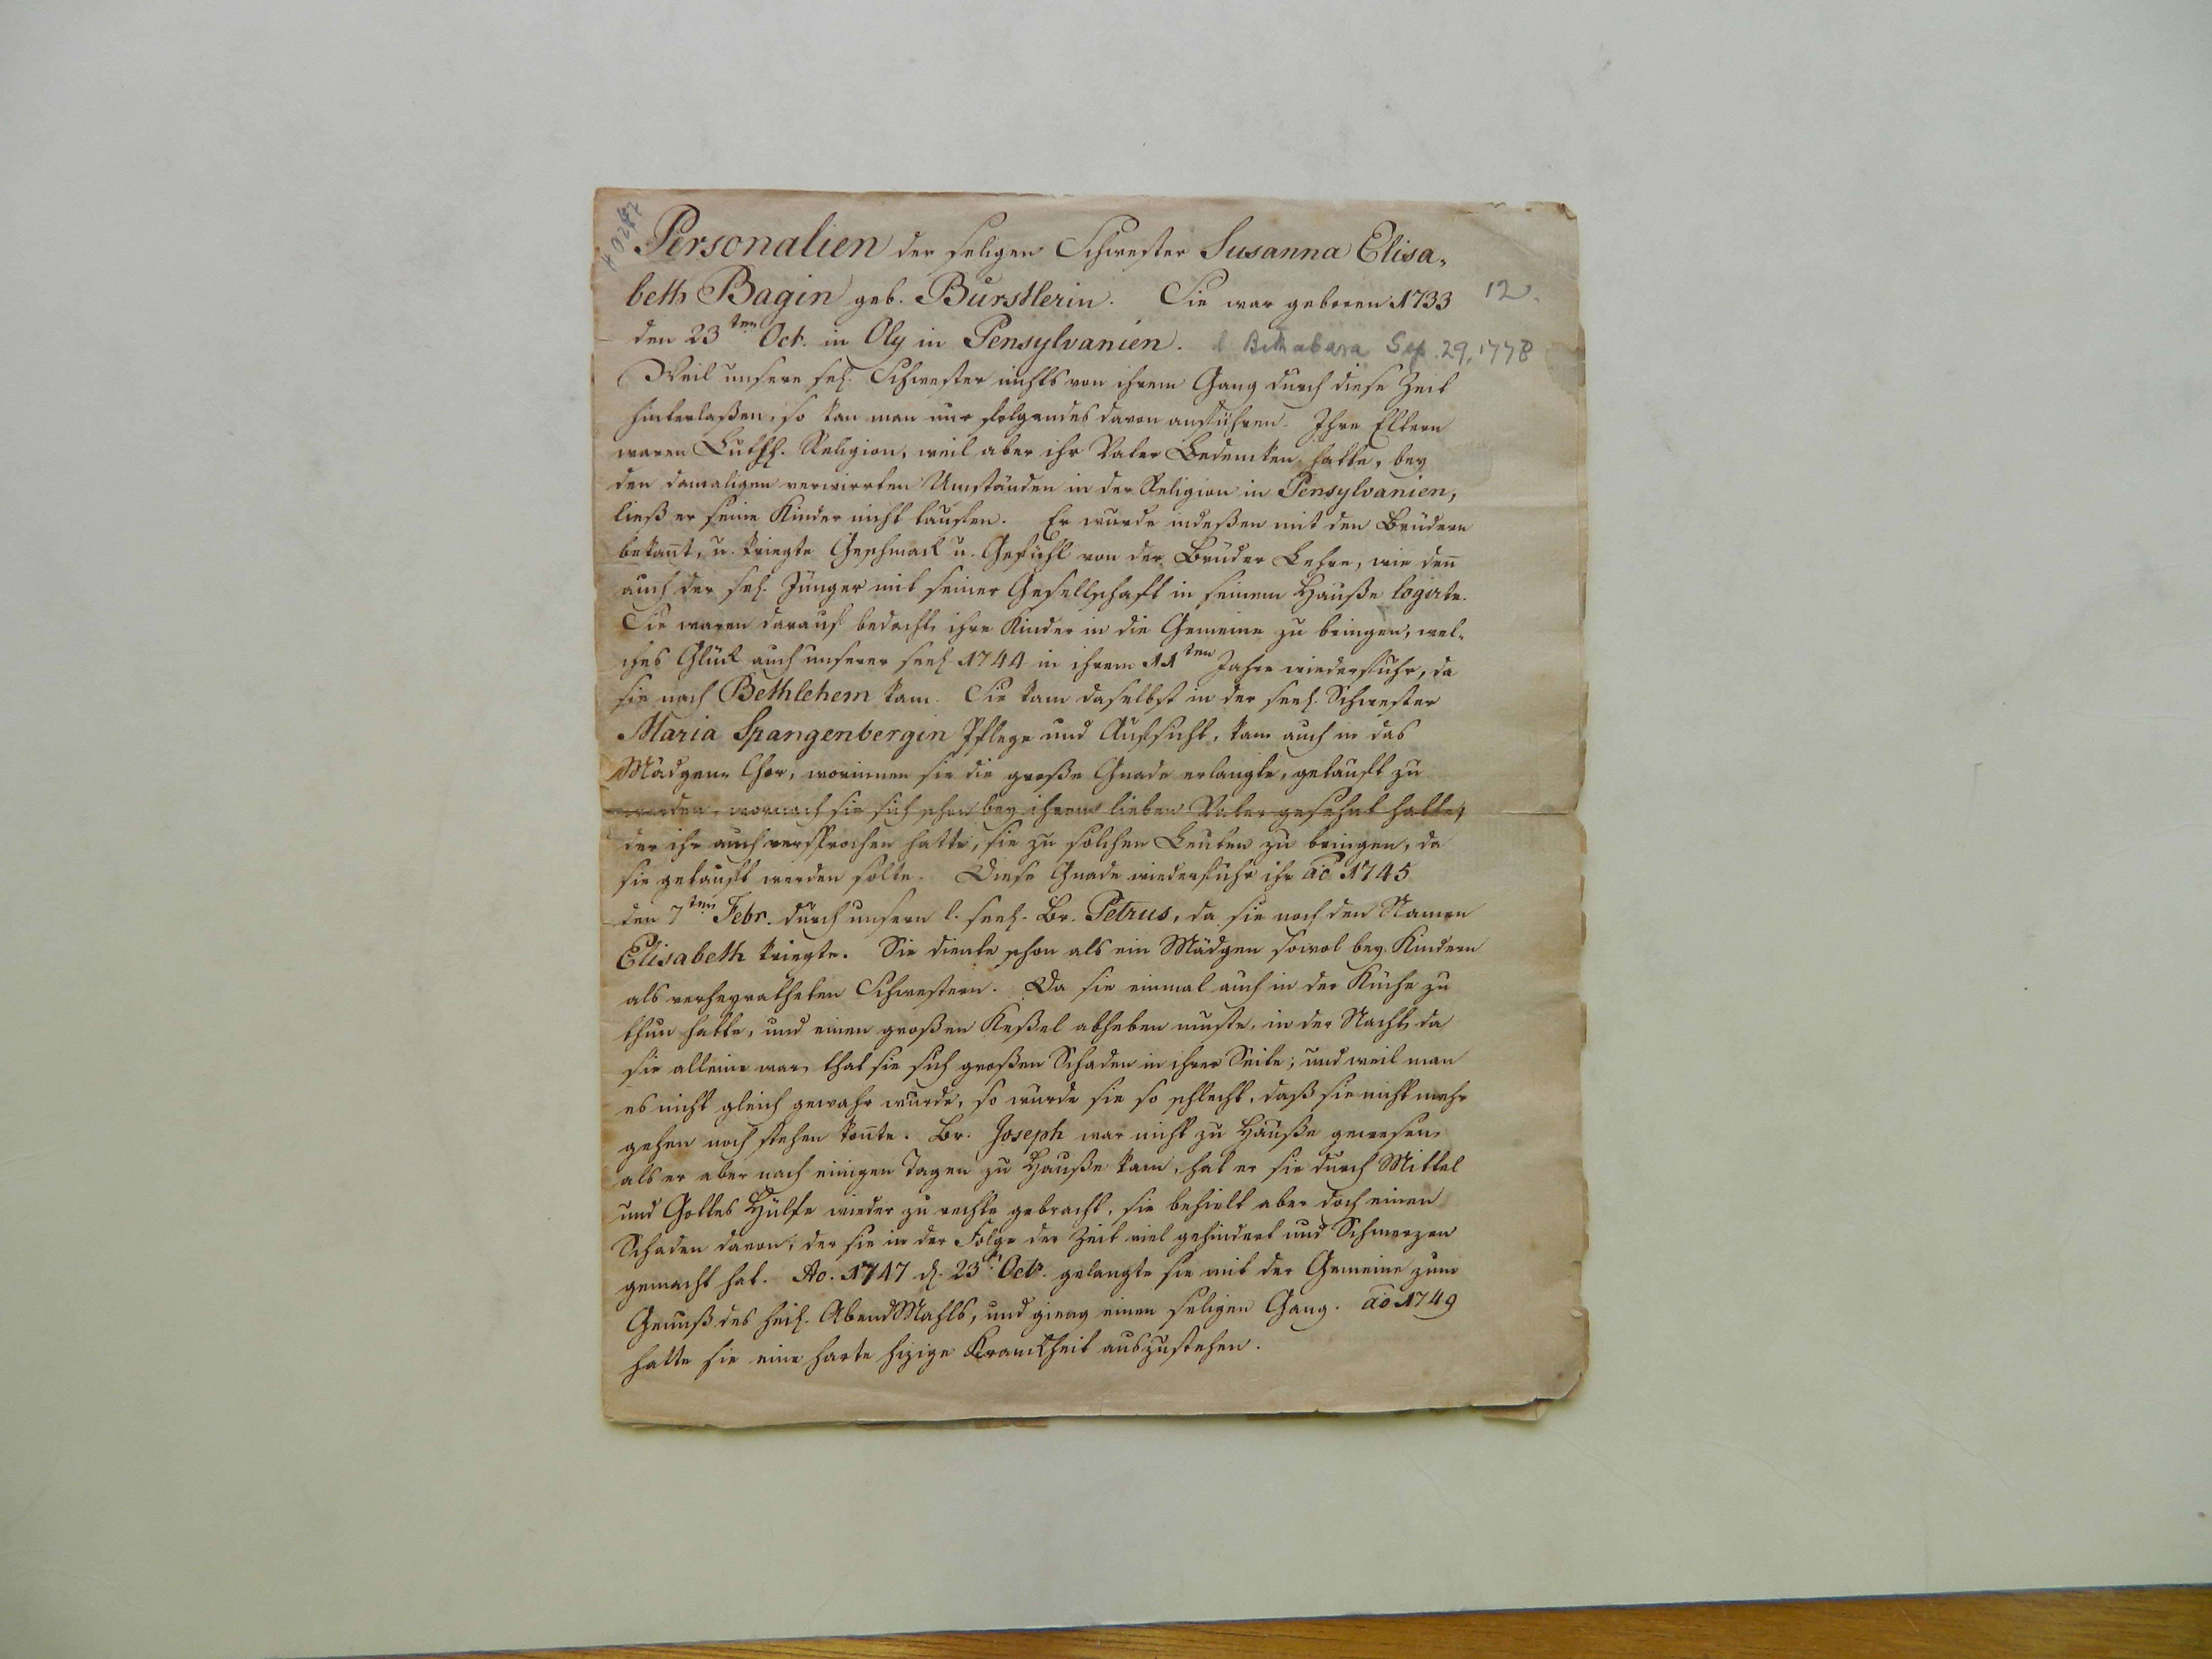 Personalien der seligen Schwester Susanna Elisa-
beth Bagin geb. Bürstlerin. Sie war geboren 1733
12.
den 23ten Oct. in Oly in Pensylvanien. Bethabara Sep. 29, 1778
Weil unsere sel. Schwester nichts von ihrem Gang durch diese Zeit
hinterlaßen, so kan man nur folgendes davon anführen. Ihre Eltern
waren Luth. Religion, weil aber ihr Vater Bedencken hatte, bey
den damaligen verwirrten Umständen in der Religion in Pensylvanien,
ließ er seine Kinder nicht taufen. Er wurde indeßen mit den Brüdern
bekan̄t, u. kriegte Geschmack u. Gefühl von der Brüder Lehre, wie den̄
auch der sel. Jünger mit seiner Gesellschaft in seinem Hauße logirte.
Sie waren darauf bedacht, ihre Kinder in die Gemeine zu bringen, wel-
ches Glük auch unserer seel. 1744 in ihrem 11ten Jahre wiederfuhr, da
sie nach Bethlehem kam. Sie kam daselbst in der seel. Schwester
Maria Spangenbergin Pflege und Aufsicht, kam auch in das
Mädgen-Chor, worinnen sie die große Gnade erlangte, getauft zu
werden, wornach sie sich schon bey ihrem lieben Vater gesehnt hatte,
der ihr auch versprochen hatte, sie zu solchen Leuten zu bringen, da
sie getauft werden solte. Diese Gnade wiederfuhr ihr ao 1745
den 7ten Febr. durch unsern l. seel. Br. Petrus, da sie noch den Namen
Elisabeth kriegte. Sie diente schon als ein Mädgen sowol bey Kindern
als verheyratheten Schwestern. Da sie einmal auch in der Küche zu
thun hatte, und einen großen Keßel abheben muste, in der Nacht, da
sie alleine war, that sie sich großen Schaden in ihrer Seite; und weil man
es nicht gleich gewahr wurde, so wurde sie so schlecht, daß sie nicht mehr
gehen noch stehen kon̄te. Br. Joseph war nicht zu Hauße gewesen,
als er aber nach einigen Tagen zu Hauße kam, hat er sie durch Mittel
und Gottes Hülfe wieder zu rechte gebracht, sie behielt aber doch einen
Schaden davon, der sie in der Folge der Zeit viel gehindert und Schmerzen
gemacht hat. Ao. 1747 d. 23t. Octr. gelangte sie mit der Gemeine zum
Genuß des heil. AbendMahls, und gieng einen seligen Gang. ao 1749
hatte sie eine harte hizige Kranckheit auszustehen.